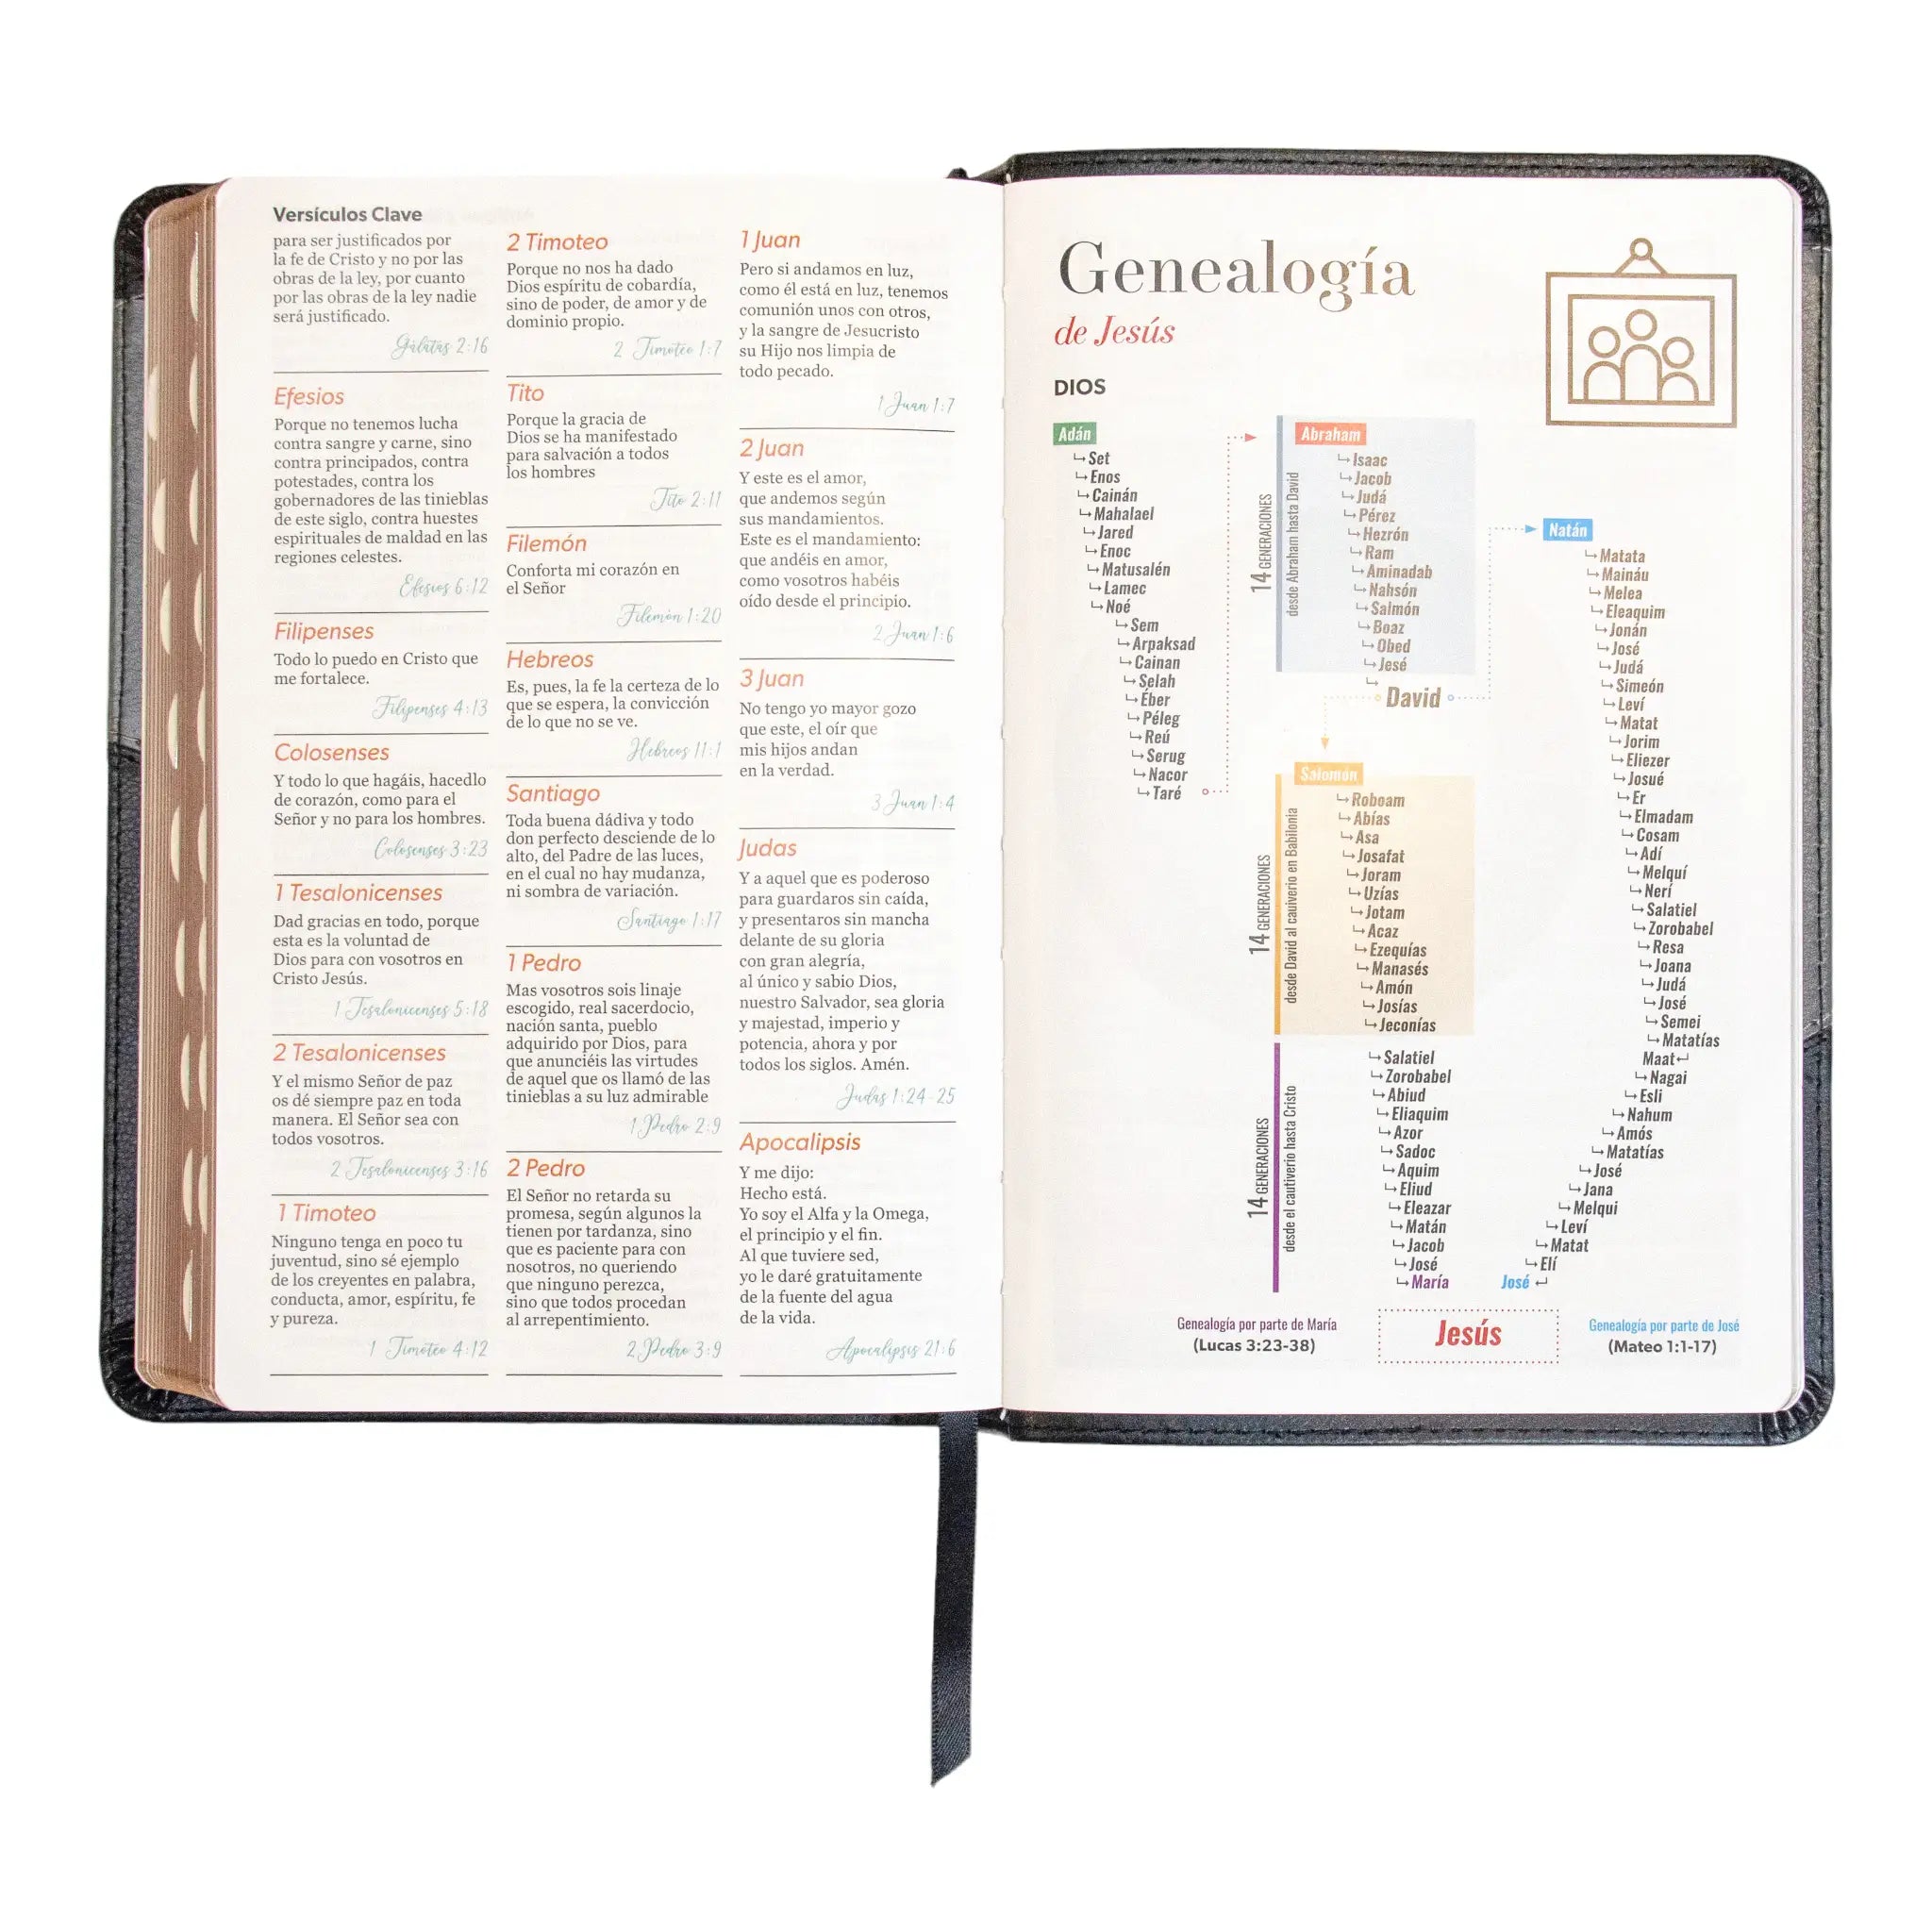 Versículos Clave
para ser justificados por
la fe de Cristo y no por las
obras de la ley, por cuanto
por las obras de la ley nadie
será justificado.
Gálatas 2:16
Efesios
Porque no tenemos lucha
contra sangre y carne, sino
contra principados, contra
potestades, contra los
gobernadores de las tinieblas
de este siglo, contra huestes
espirituales de maldad en las
regiones celestes.
Efesios 6:12
Filipenses
Todo lo puedo en Cristo que
me fortalece.
Filipenses 4:13
Colosenses
Y todo lo que hagáis, hacedlo
de corazón, como para el
Señor y no para los hombres.
Colosenses 3:23
1 Tesalonicenses
Dad gracias en todo, porque
esta es la voluntad de
Dios para con vosotros en
Cristo Jesús.
1 Tesalonicenses 5:18
2 Tesalonicenses
Y el mismo Señor de paz
os dé siempre paz en toda
manera. El Señor sea con
todos vosotros.
2 Tesalonicenses 3:16
1 Timoteo
Ninguno tenga en poco tu
juventud, sino sé ejemplo
de los creyentes en palabra,
conducta, amor, espíritu, fe
y pureza.
1 Timoteo 4:12
2 Timoteo
Porque no nos ha dado
Dios espíritu de cobardía,
sino de poder, de amor y de
dominio propio.
2 Timoteo 1:7
Tito
Porque la gracia de
Dios se ha manifestado
para salvación a todos
los hombres
Tito 2:11
Filemón
Conforta mi corazón en
el Señor
Filemón 1:20
Hebreos
Es, pues, la fe la certeza de lo
que se espera, la convicción
de lo que no se ve.
Hebreos 11:1
Santiago
Toda buena dádiva y todo
don perfecto desciende de lo
alto, del Padre de las luces,
en el cual no hay mudanza,
ni sombra de variación.
Santiago 1:17
1 Pedro
Mas vosotros sois linaje
escogido, real sacerdocio,
nación santa, pueblo
adquirido por Dios, para
que anunciéis las virtudes
de aquel que os llamó de las
tinieblas a su luz admirable
1 Pedro 2:9
2 Pedro
El Señor no retarda su
promesa, según algunos la
tienen por tardanza, sino
que es paciente para con
nosotros, no queriendo
que ninguno perezca,
sino que todos procedan
al arrepentimiento.
2 Pedro 3:9
1 Juan
Pero si andamos en luz,
como él está en luz, tenemos
comunión unos con otros,
y la sangre de Jesucristo
su Hijo nos limpia de
todo pecado.
1 Juan 1:7
2 Juan
Y este es el amor,
que andemos según
sus mandamientos.
Este es el mandamiento:
que andéis en amor,
como vosotros habéis
oído desde el principio.
2 Juan 1:6
3 Juan
No tengo yo mayor gozo
que este, el oír que
mis hijos andan
en la verdad.
3 Juan 1:4
Judas
Y a aquel que es poderoso
para guardaros sin caída,
y presentaros sin mancha
delante de su gloria
con gran alegría,
al único y sabio Dios,
nuestro Salvador, sea gloria
y majestad, imperio y
potencia, ahora y por
todos los siglos. Amén.
Judas 1:24-25
Apocalipsis
Y me dijo:
Hecho está.
Yo soy el Alfa y la Omega,
el principio y el fin.
Al que tuviere sed,
yo le daré gratuitamente
de la fuente del agua
de la vida.
Apocalipsis 21:6
Genealogía
de Jesús
DIOS
Adán
Set
Enos
Cainán
Mahalael
Jared
Enoc
Matusalén
Lamec
Noé
Sem
Arpaksad
Cainan
Selah
Éber
Péleg
Reú
Serug
Nacor
Taré
14 GENERACIONES
desde Abraham hasta David
Abraham
Isaac
Jacob
Judá
Pérez
Hezrón
Ram
Aminadab
Nahsón
Salmón
Boaz
Obed
Jesé
David
14 GENERACIONES
desde David al cauiverio en Babilonia
Salomón
Roboam
Abías
Asa
Josafat
Joram
Uzías
Jotam
Acaz
Ezequías
Manasés
Amón
Josías
Jeconías
14 GENERACIONES
desde el cautiverio hasta Cristo
Salatiel
Zorobabel
Abiud
Eliaquim
Azor
Sadoc
Aquim
Eliud
Eleazar
Matán
Jacob
José
María
Natán
Matata
Maináu
Melea
Eleaquim
Jonán
José
Judá
Simeón
Leví
Matat
Jorim
Eliezer
Josué
Er
Elmadam
Cosam
Adí
Melquí
Nerí
Salatiel
Zorobabel
Resa
Joana
Judá
José
Semei
Matatías
Maat
Nagai
Esli
Nahum
Amós
Matatías
José
Jana
Melqui
Leví
Matat
Elí
José
Genealogía por parte de María
(Lucas 3:23-38)
Jesús
Genealogía por parte de José
(Mateo 1:1-17)